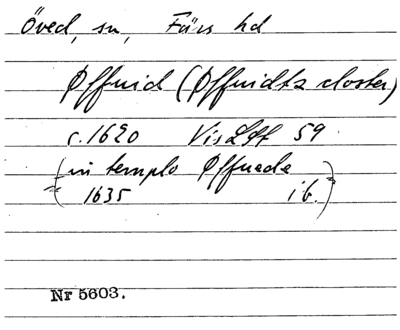 Öved, sn, Färs hd
Øffuid (Øffuidtz closter)
c. 1620 VisLSt 59
(in templo Øffuede
1635 ib.)
Nr 5603.